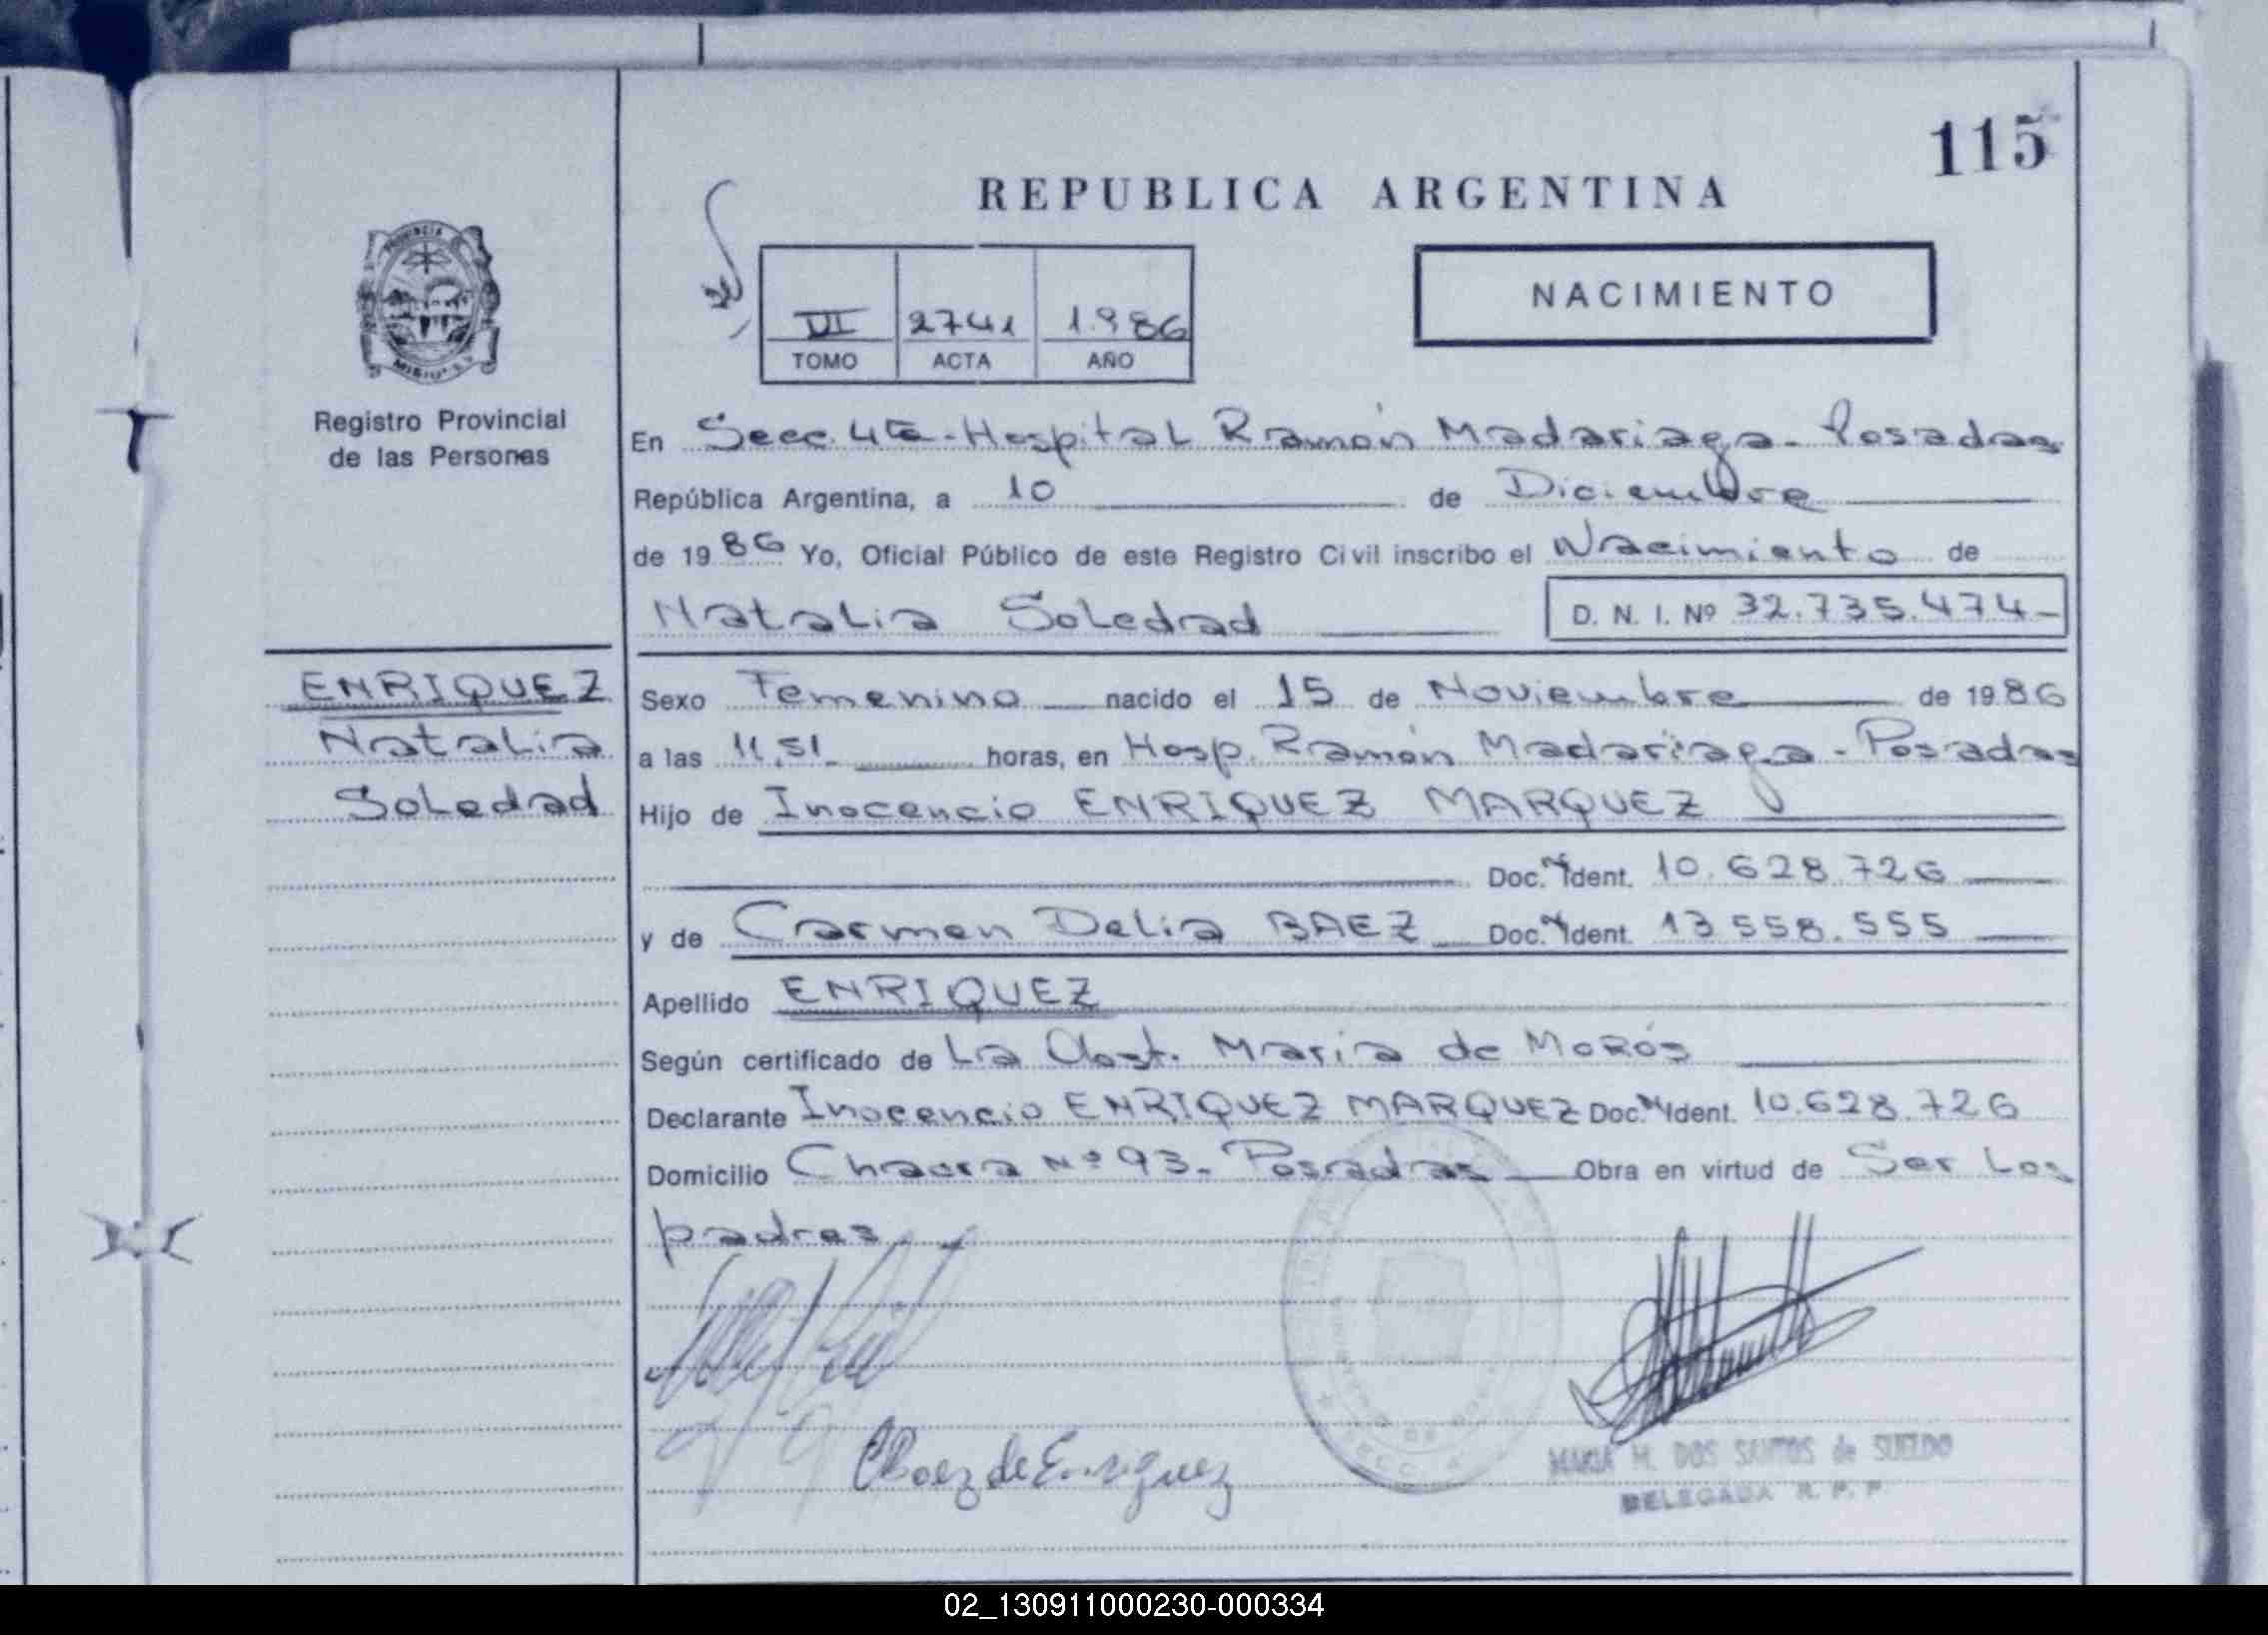 115
REPUBLICA ARGENTINA
NACIMIENTO
VII 2741 1.986
TOMO ACTA AÑO
PROVINCIA DE
MISIONES
Registro Provincial
de las Personas
En Secc. 4ta - Hospital Ramón Madariaga - Posadas
República Argentina, a 10 de Diciembre
de 1986 Yo, Oficial Público de este Registro Civil inscribo el Nacimiento de
Natalia Soledad D. N. I. Nº 32.735.474-
ENRIQUEZ
Natalia
Soledad
Sexo Femenino nacido el 15 de Noviembre de 1986
a las 11,51. horas, en Hosp. Ramón Madariaga - Posadas
Hijo de Inocencio ENRIQUEZ MARQUEZ
Doc. Ident. 10.628.726
y de Carmen Delia BAEZ Doc. Ident. 13.558.555
Apellido ENRIQUEZ
Según certificado de La Obst. Maria de Morós
Declarante Inocencio ENRIQUEZ MARQUEZ Doc. Ident. 10.628.726
Domicilio Chacra Nº 93. Posadas Obra en virtud de Ser Los
padres
CBaez de Enriquez
MARIA M. DOS SANTOS de SUELDO
DELEGADA R. P. P.
02_130911000230-000334